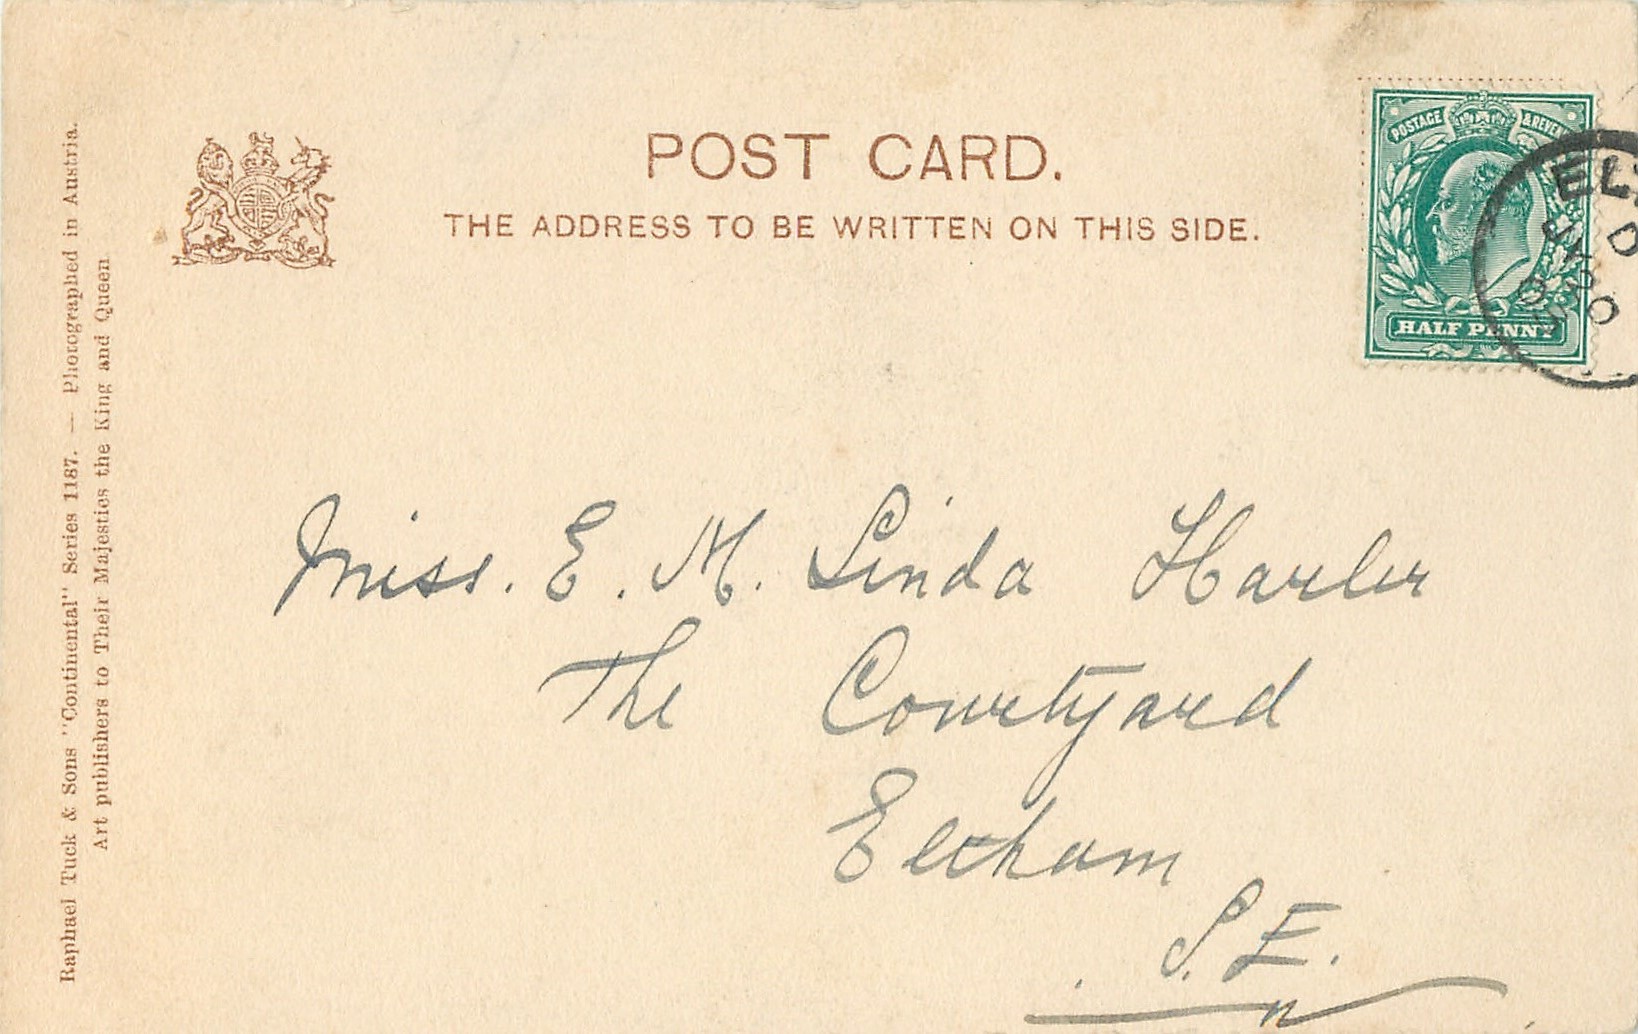 POST CARD.
THE ADDRESS TO BE WRITTEN ON THIS SIDE.
POSTAGE & REVEN
HALF PENNY
EL
D
Raphael Tuck & Sons "Continental" Series 1187. — Photographed in Austria.
Art publishers to Their Majesties the King and Queen
Miss. E. M. Linda Harler
The Courtyard
Eltham
S.E.